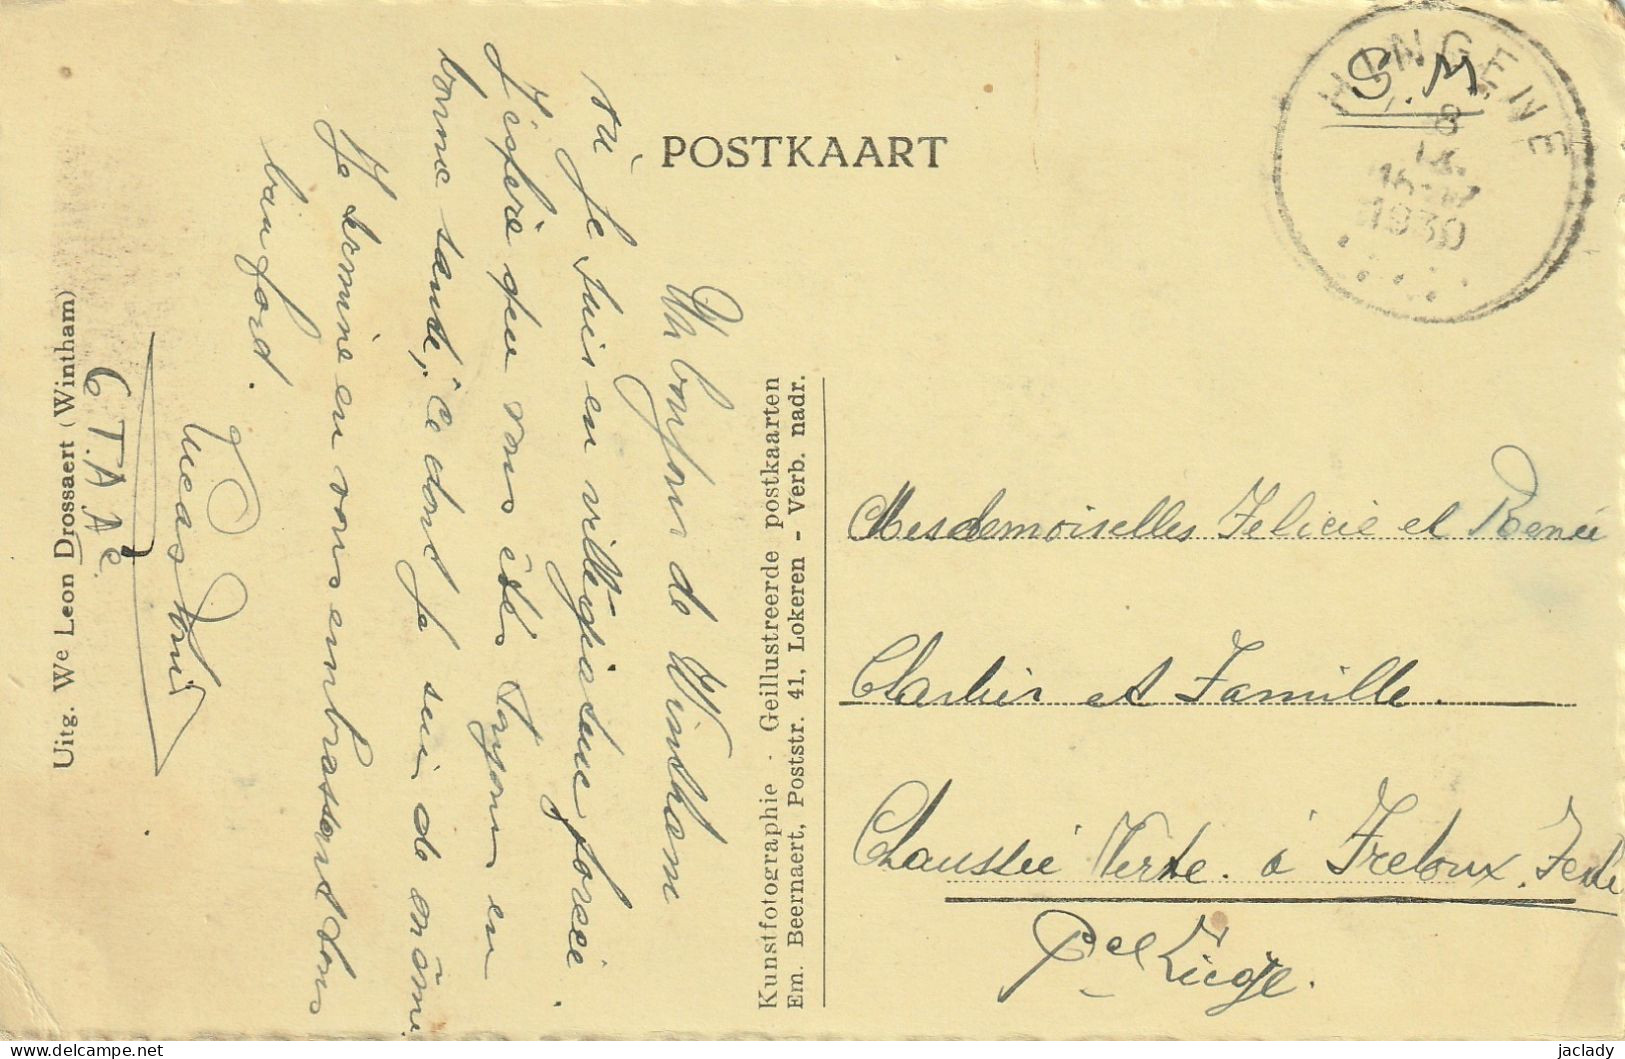 POSTKAART
HINGENE
8
IX
1939
S.M
Un bonjour de Wintham
où je suis en villégiature forcée.
J'espère que vous êtes toujours en
bonne santé, ce dont je suis de même
Je termine en vous embrassant tous
bien fort.
Lucas
6 T.A Ae
Uitg. We Leon Drossaert (Wintham)
Kunstfotographie · Geillustreerde postkaarten
Em. Beernaert, Poststr. 41, Lokeren - Verb. nadr.
Mesdemoiselles Felicie et Renée
et Famille.
Chaussée Verte. à Freloux. Fexhe
Liège.
jaclady